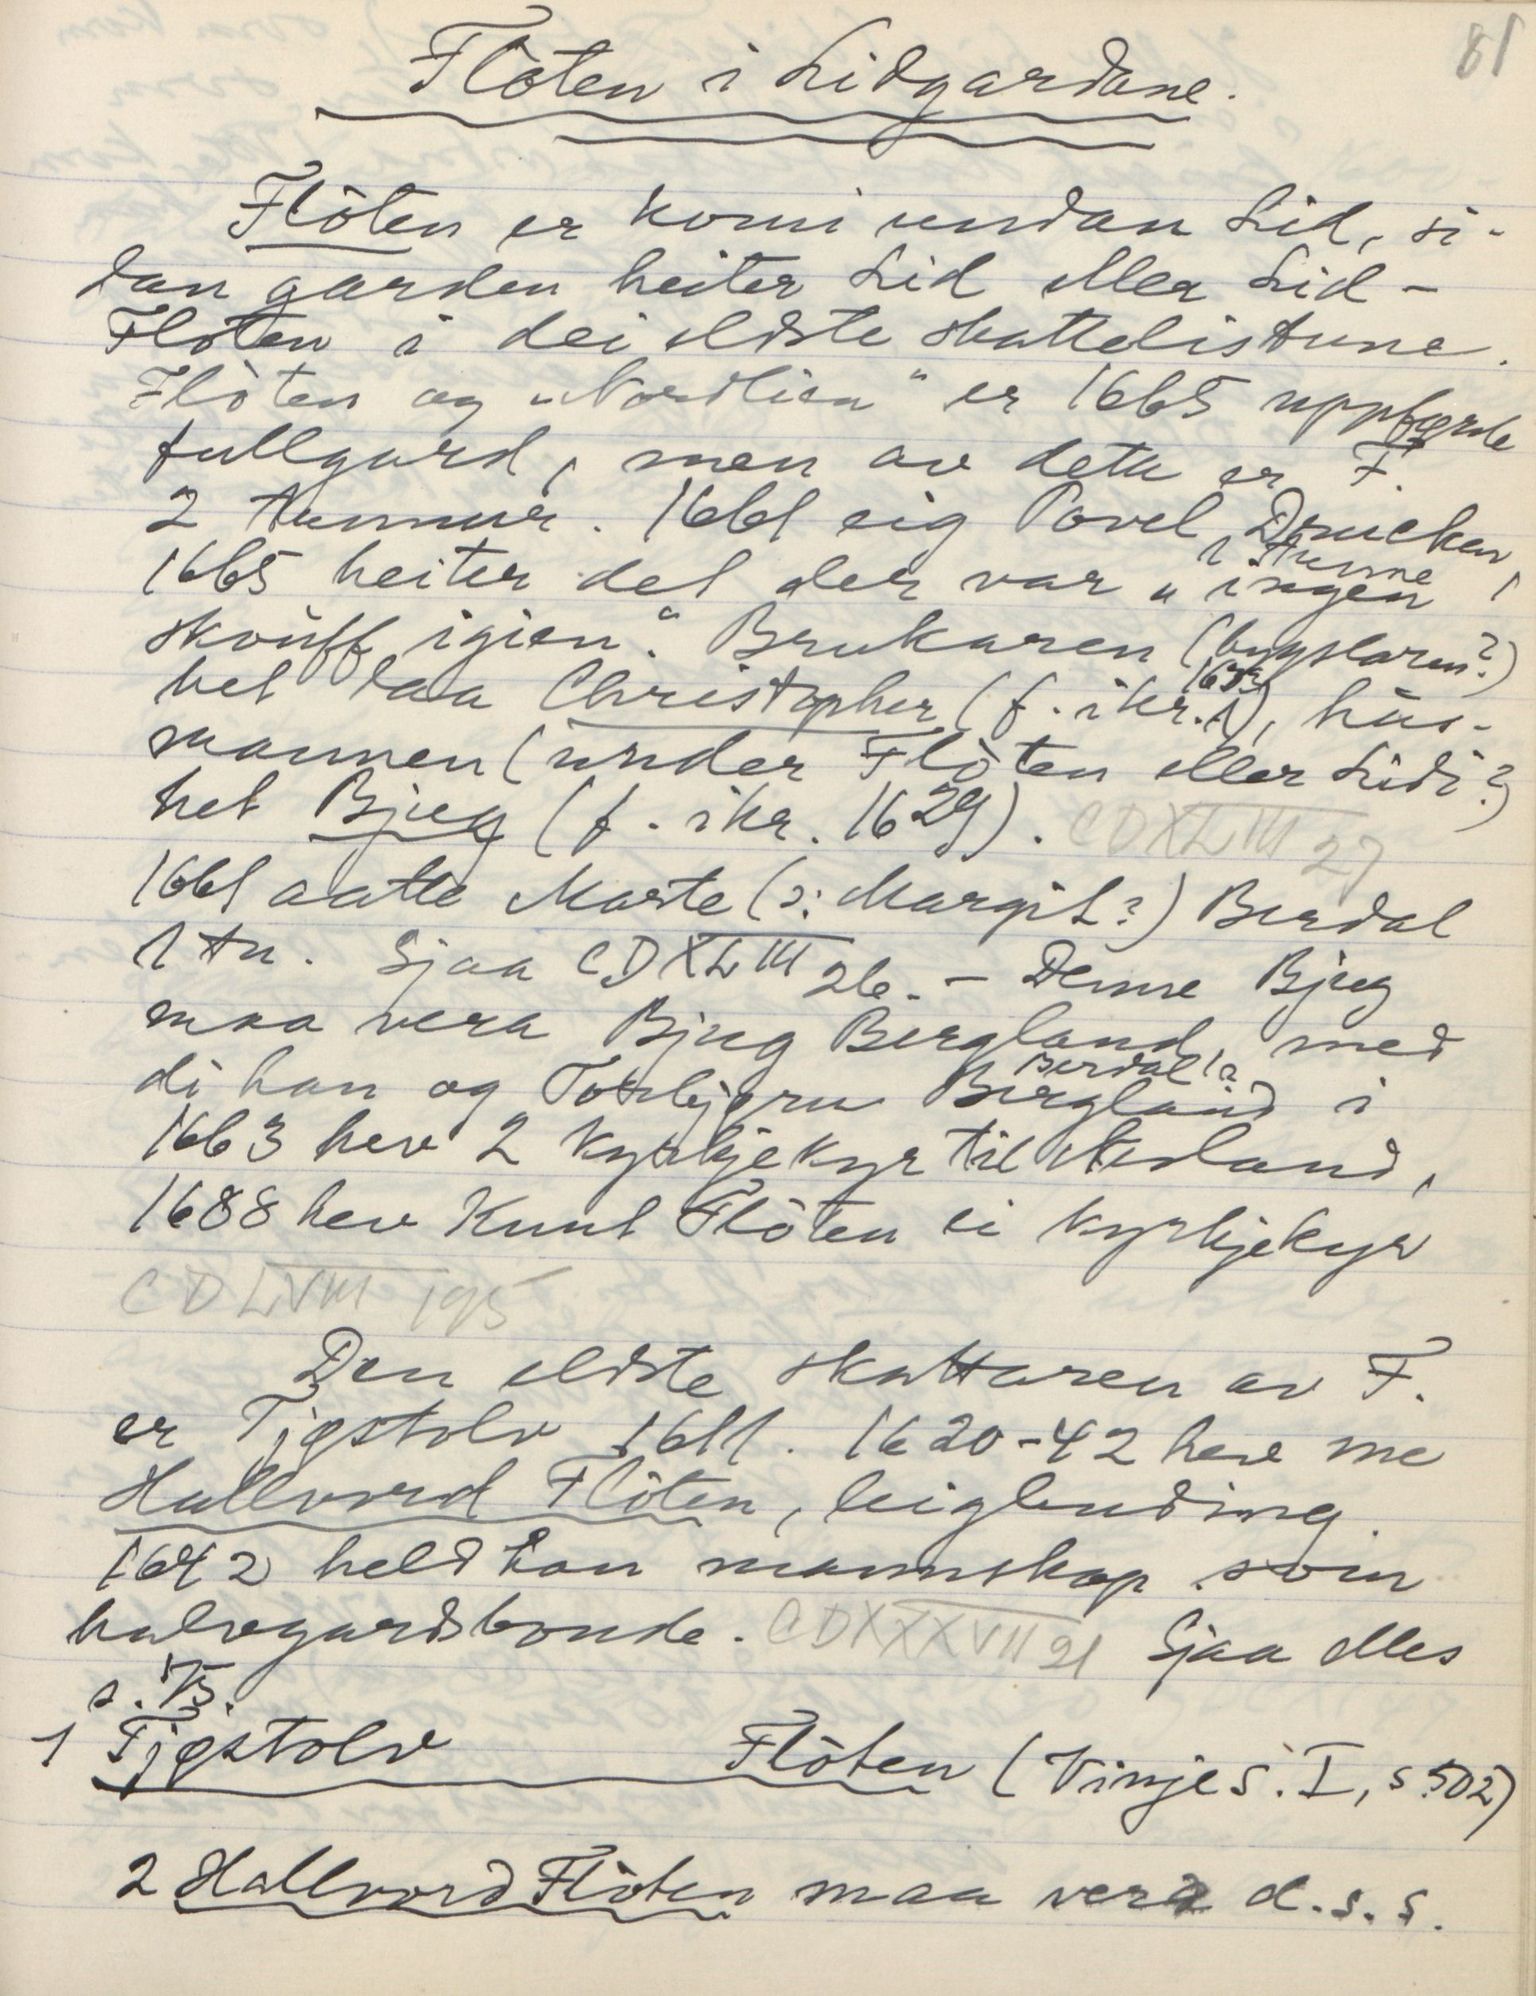 81
Flòten i Lidgardane.
Flòten er komi undan Lid, si-
dan garden heiter Lid eller Lid-
Flòten i dei eldste skattelistune.
Flòten og "Nordlien" er 1665 uppførde
fullgard, men av detta er F.
2 tunnur. 1661 eig Povel Drucken
1 tunne,
1665 heiter det der var "ingen
skouff igien". Brukaren (bygslaren?)
het daa Christopher (f. ikr. 1631), hus-
mannen (under Flòten eller Lid i?)
het Bjug (f. ikr. 1629). CDXLIII 27
1661 aatte Marte (ɔ: Margit?) Berdal
1 tn. Sjaa CDXLIII 26. - Denne Bjug
maa vera Bjug Bergland, med
di han og Torbjørn Bergland Berdal? i
1663 hev 2 kyrkjekyr til Nesland,
1688 hev Knut Flòten ei kyrkjekyr
CDLVIII 195
Den eldste skattaren av F.
er Tjøstolv 1611. 1620-42 hev me
Hallvord Flòten, leiglending.
1642 held han mannskap som
halvgardsbonde. CDXXXVII 21 Sjaa elles
s. 73.
1 Tjøstolv Flòten (Vinje s. I, s 502)
2 Hallvord Flòten maa vera d.s.s.